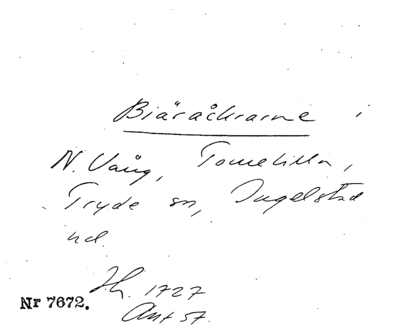 Biäråkrarne i
N. Vång, Tomelilla,
Tryde sn, Ingelstad
hd.
Jh. 1727
Ant 57.
Nr 7672.